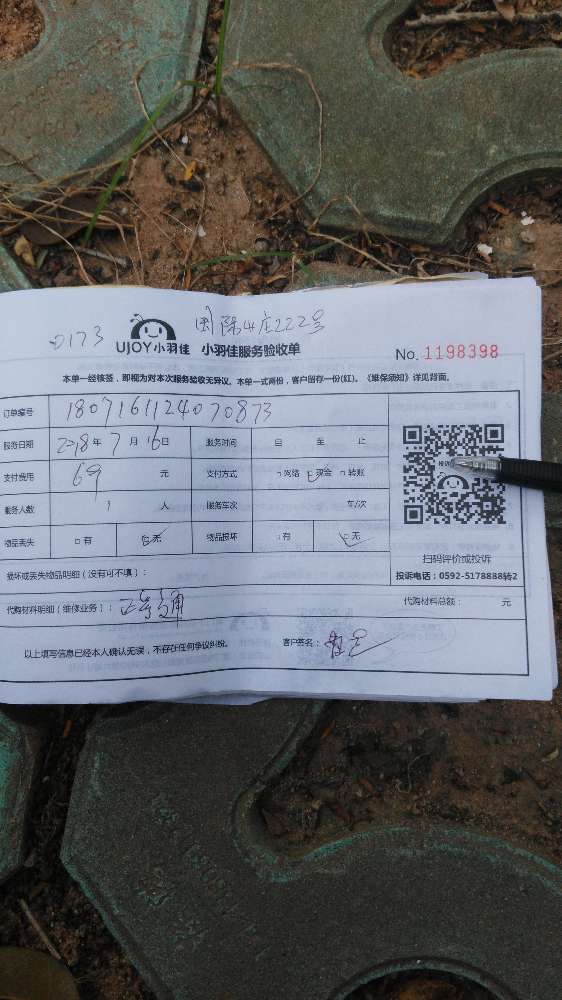 0173 国际山庄222号
UJOY小羽佳 小羽佳服务验收单
No. 1198398
本单一经核签，即视为对本次服务验收无异议。本单一式两份，客户留存一份(红)。《维保须知》详见背面。
订单编号 1807161124070873
服务日期 2018年 7月 16日 服务时间 自 至 止
支付费用 69 元 支付方式 □网络 □现金 □转账
服务人数 1 人 服务车次 车/次
物品丢失 □有 □无 物品损坏 □有 □无
扫码评价或投诉
投诉电话：0592-5178888转2
损坏或丢失物品明细（没有可不填）：
代购材料明细（维修业务）： 代购材料总额： 元
以上填写信息已经本人确认无误，不存在任何争议纠纷。 客户签名：